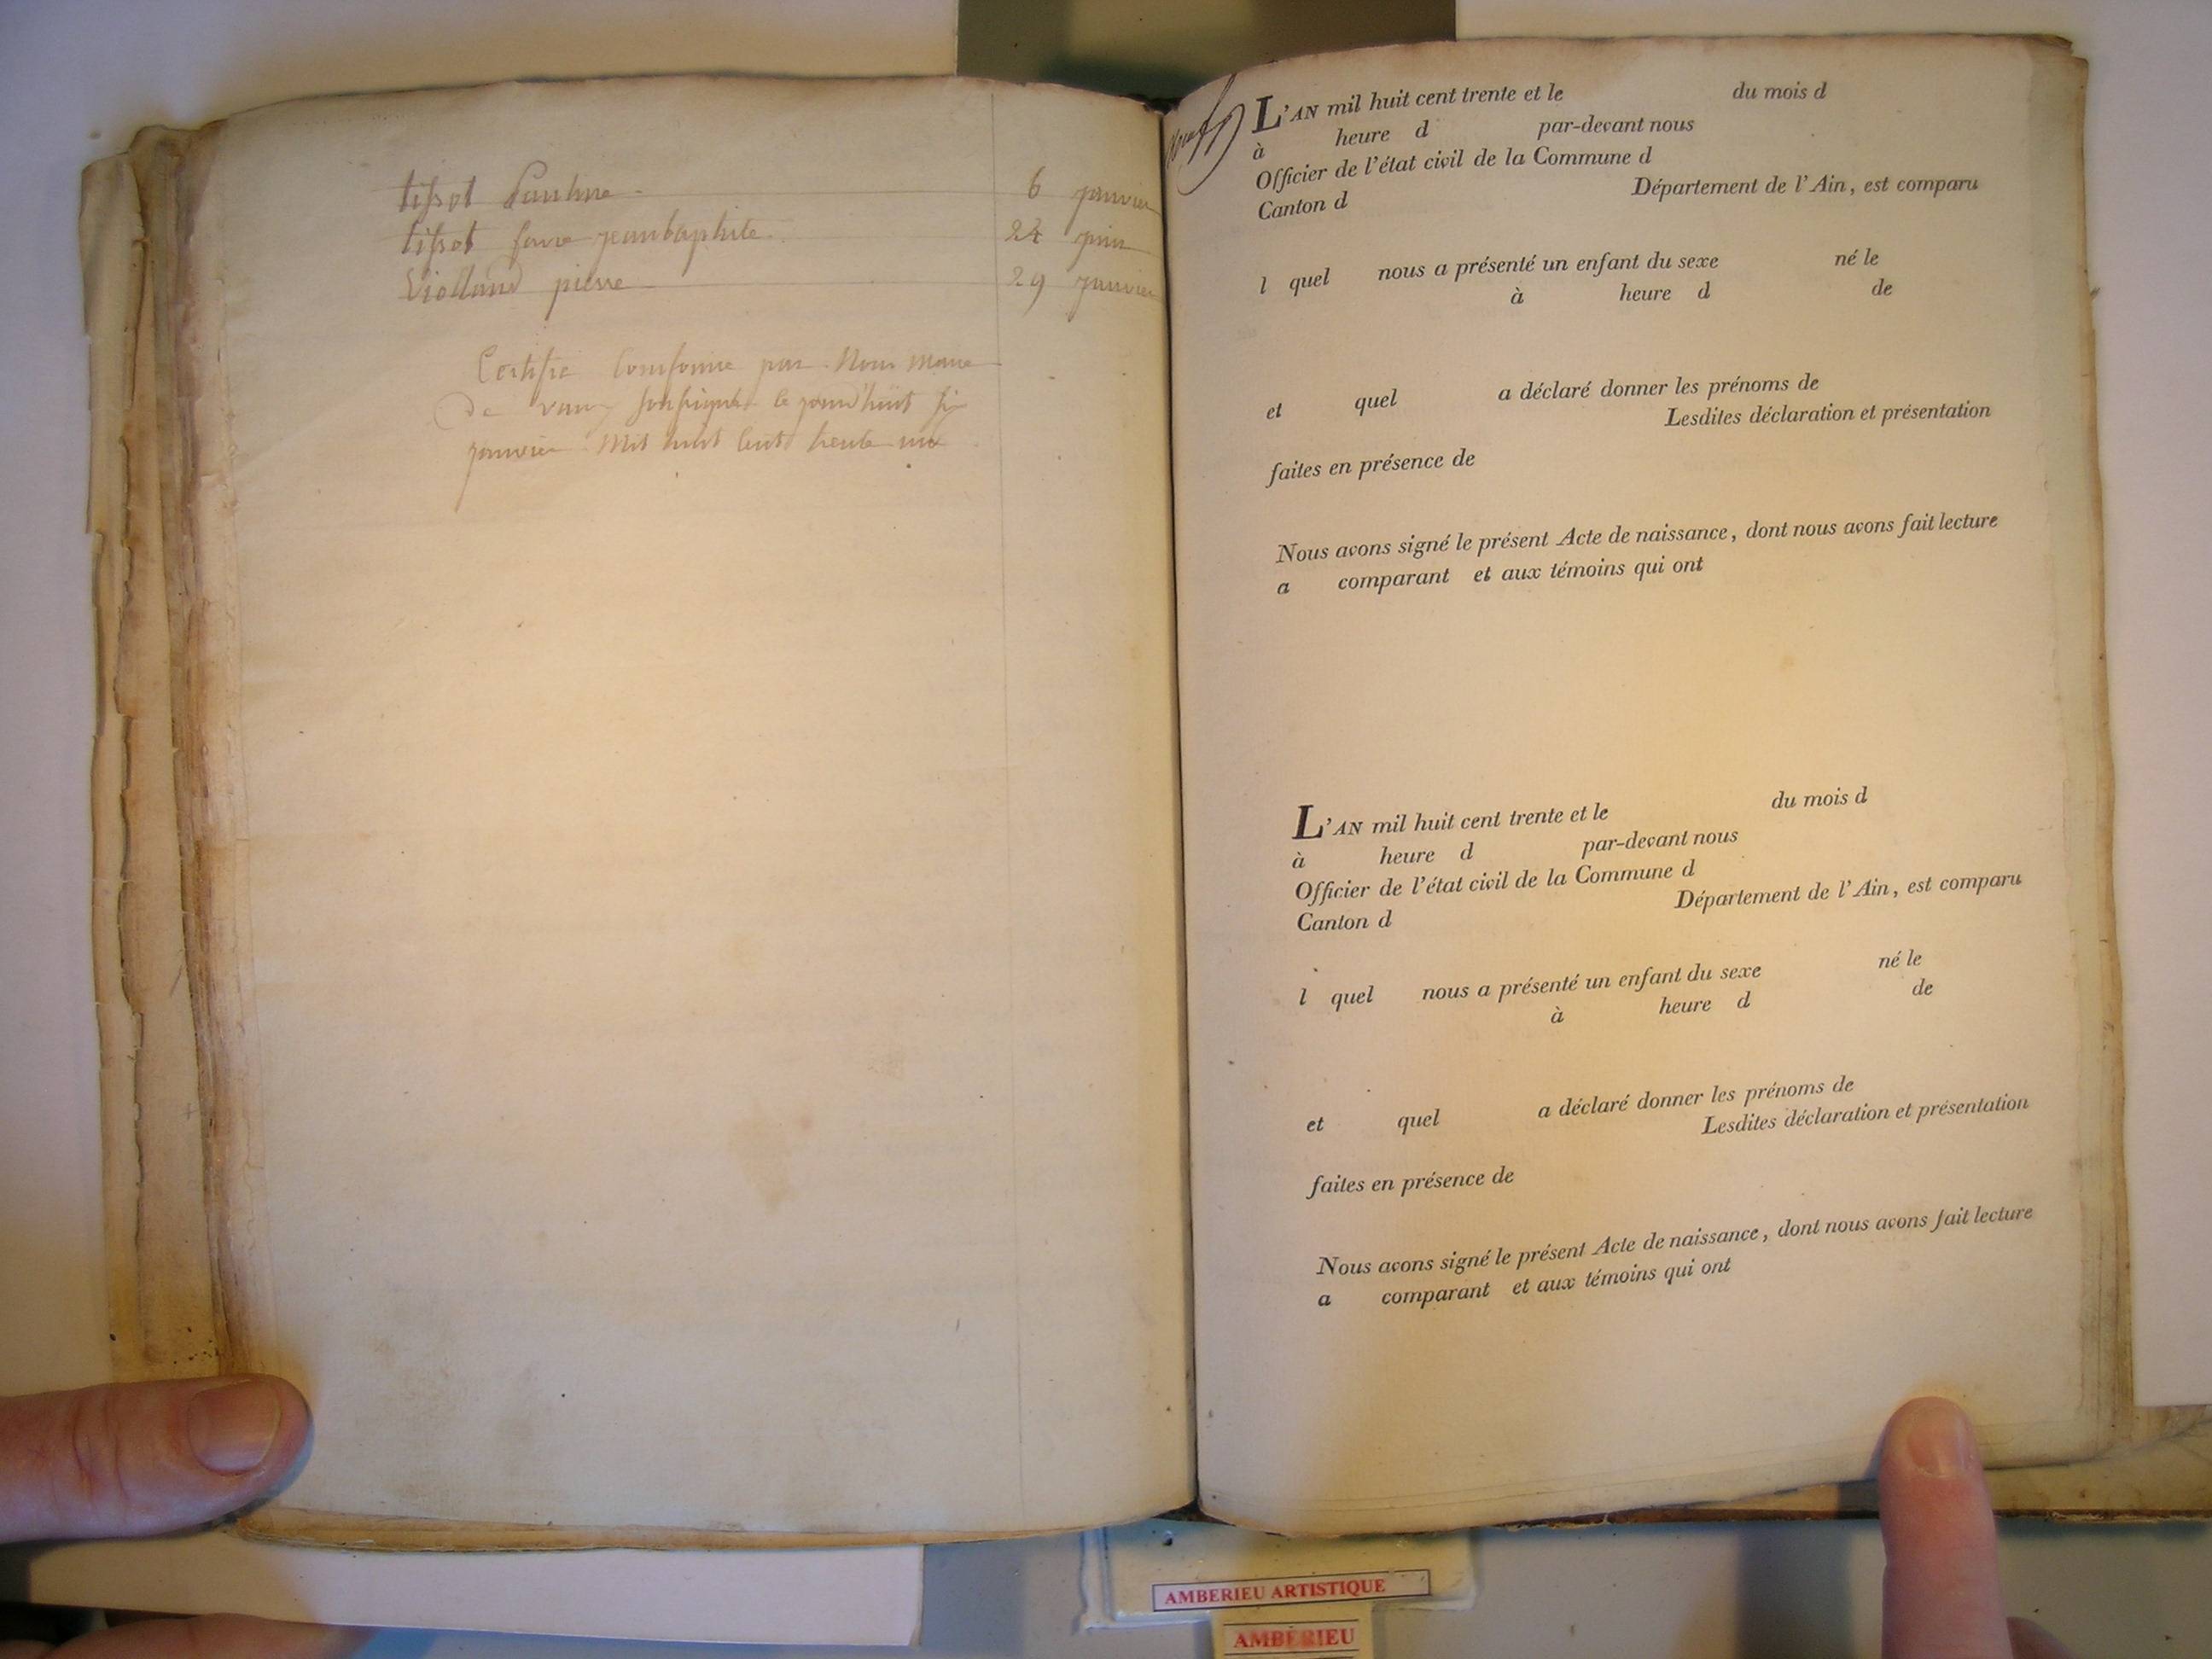 tissot Pauline 6 janvier
tissot jeanbaptiste 24 juin
Violland pierre 29 janvier
Certifié Conforme par Nous maire
de vaux soussigné le jourd'huit six
janvier Mil huit Cent trente un
L'AN mil huit cent trente et le du mois d
à heure d par-devant nous
Officier de l'état civil de la Commune d
Canton d Département de l'Ain, est comparu
l quel nous a présenté un enfant du sexe né le
à heure d de
et quel a déclaré donner les prénoms de
Lesdites déclaration et présentation
faites en présence de
Nous avons signé le présent Acte de naissance, dont nous avons fait lecture
a comparant et aux témoins qui ont
L'AN mil huit cent trente et le du mois d
à heure d par-devant nous
Officier de l'état civil de la Commune d
Canton d Département de l'Ain, est comparu
l quel nous a présenté un enfant du sexe né le
à heure d de
et quel a déclaré donner les prénoms de
Lesdites déclaration et présentation
faites en présence de
Nous avons signé le présent Acte de naissance, dont nous avons fait lecture
a comparant et aux témoins qui ont
AMBERIEU ARTISTIQUE
AMBERIEU